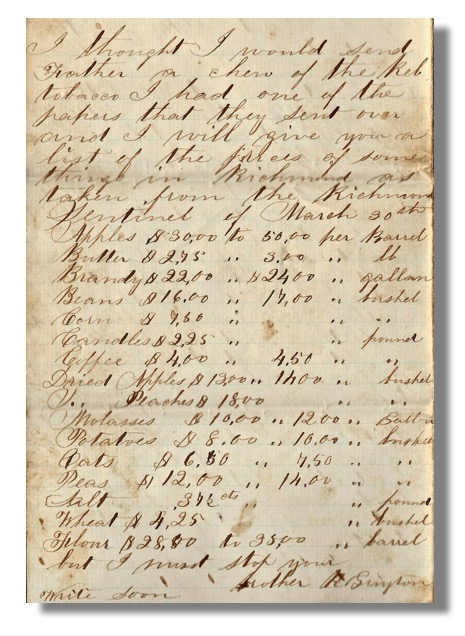 I thought I would send
Father a chew of the Reb
tobacco I had one of the
papers that they sent over
and I will give you a
list of the prices of some
things in Richmond as
taken from the Richmond
Sentinel of March 30th
Apples $30,00 to 50,00 per Barrel
Butter $2,75 " 3,00 " lb
Brandy $22,00 " $24,00 " gallon
Beans $16,00 " 17,00 " bushel
Corn $ 7,50 " " "
Candles $2,25 " pound
Coffee $4,00 " 4,50 " "
Dried Apples $13,00 " 14,00 " bushel
D.. Peaches $18,00 " "
Molasses $10,00 " 12,00 " Gallon
Potatoes $8,00 " 10,00 " bushel
Oats $6,50 " 7,50 " "
Peas $12,00 " 14,00 " "
Salt ,37½ cts " pound
Wheat $4,25 " bushel
Flour $28,80 to 35,00 " barrel
but I must stop your
brother
Write Soon